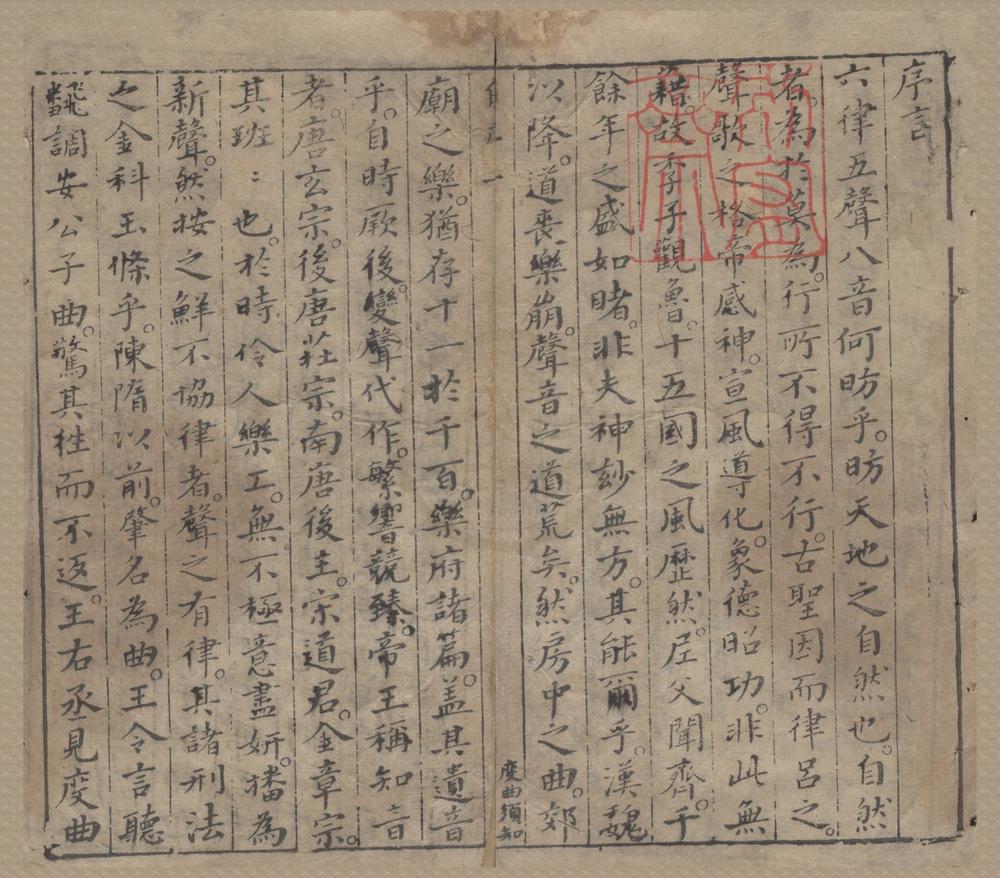 序言
六律五聲八音何昉乎。昉天地之自然也。自然
者。為於莫為。行所不得不行。古聖因而律呂之。
聲歌之。格帝感神。宣風導化。象德昭功。非此無
藉。故季子觀魯。十五國之風歷然。尼父聞齊。千
餘年之盛如睹。非夫神玅無方。其能爾乎。漢魏
以降。道喪樂崩。聲音之道荒矣。然房中之曲。郊
度曲須知
廟之樂。猶存十一於千百。樂府諸篇。盖其遺音
乎。自時厥後。變聲代作。繁響競臻。帝王稱知音
者。唐玄宗。後唐莊宗。南唐後主。宋道君。金章宗。
其班〻也。於時伶人樂工。無不極意盡妍。播為
新聲。然按之鮮不協律者。聲之有律。其諸刑法
之金科玉條乎。陳隋以前。肇名為曲。王令言聽
飜調安公子曲。驚其徃而不返。王右丞見度曲